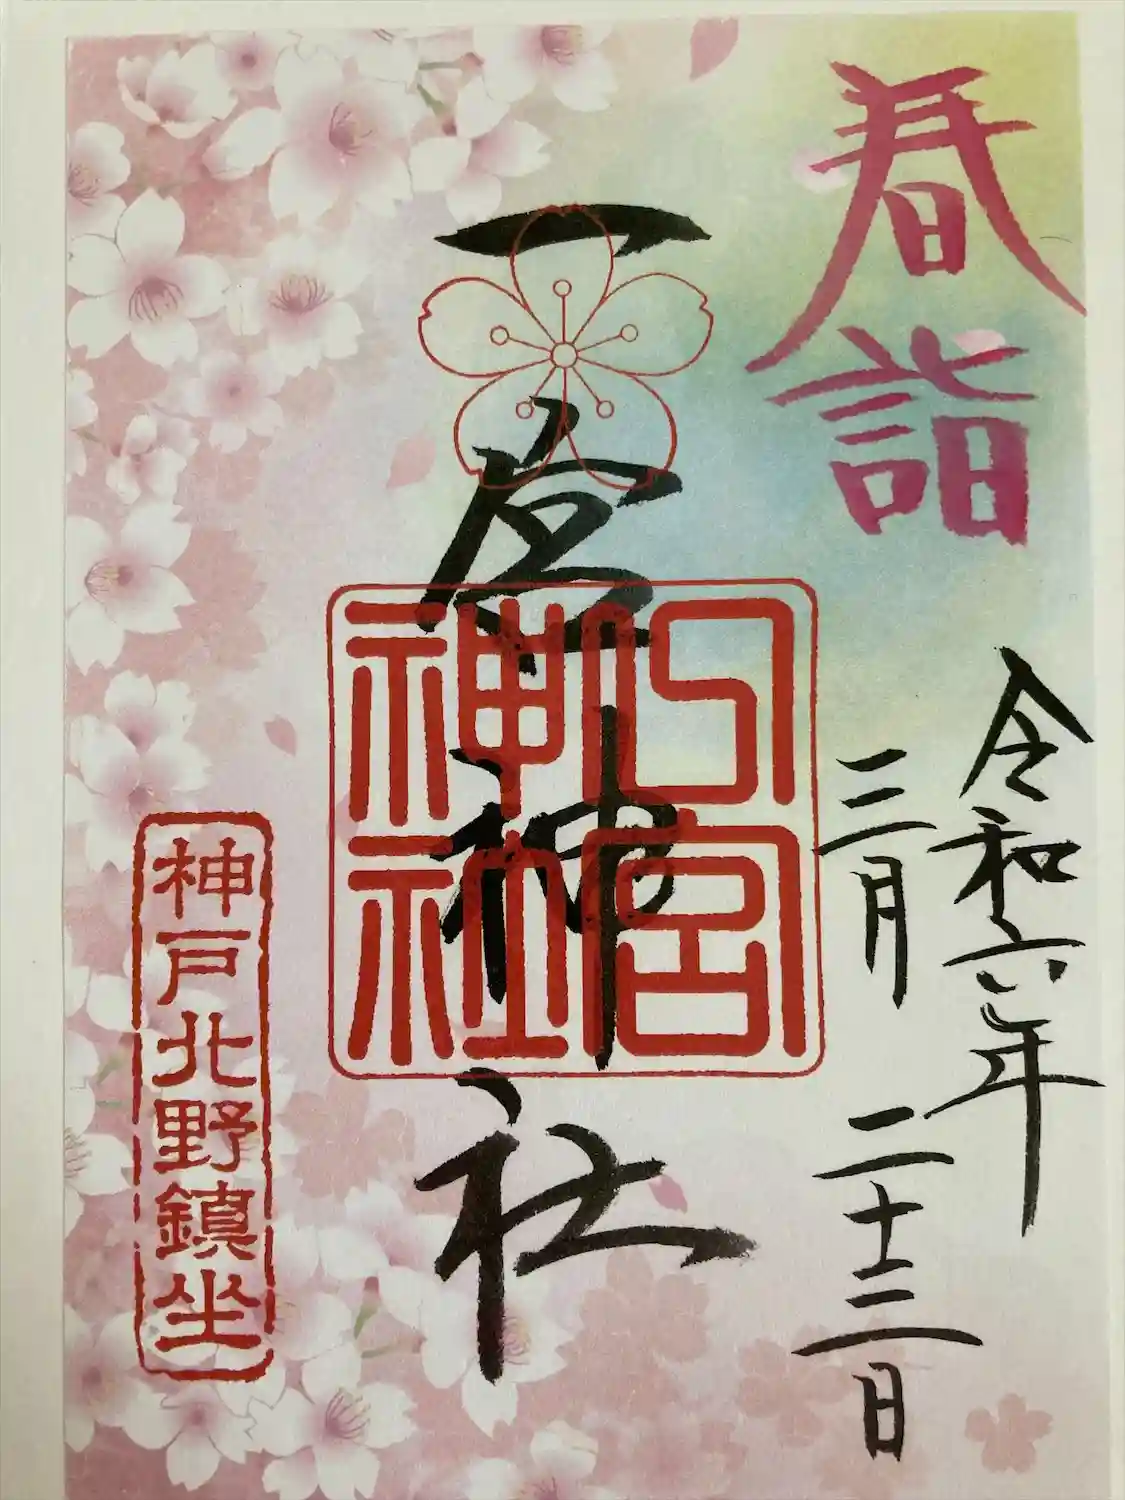 春詣
令和六年
三月二十三日
一宮神社
一宮神社
神戸北野鎮坐